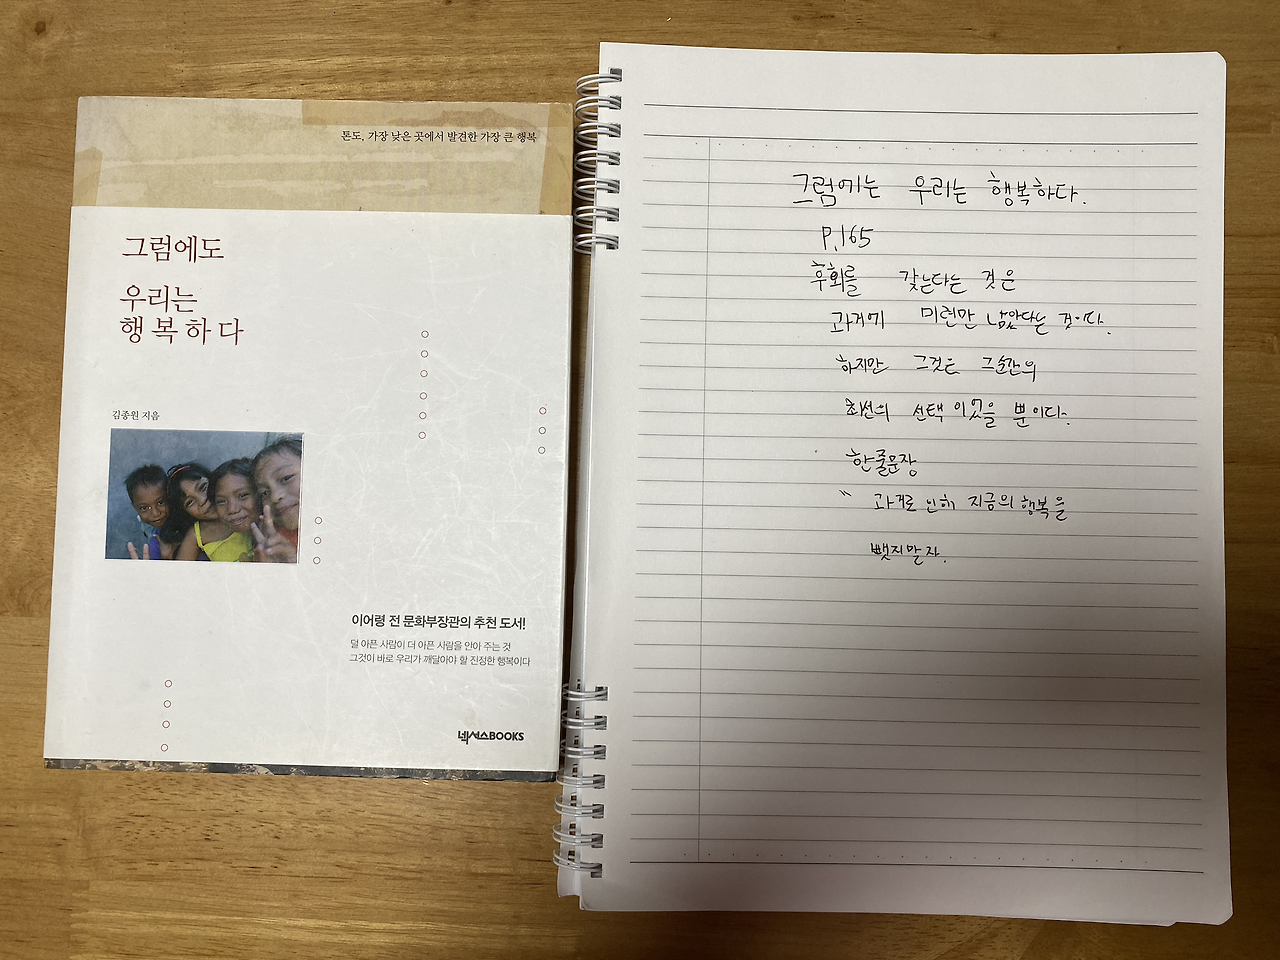 톤도, 가장 낮은 곳에서 발견한 가장 큰 행복
그럼에도
우리는
행복하다
김종원 지음
이어령 전 문화부장관의 추천 도서!
덜 아픈 사람이 더 아픈 사람을 안아 주는 것
그것이 바로 우리가 깨달아야 할 진정한 행복이다
넥서스BOOKS
그럼에는 우리는 행복하다.
P.165
후회를 갖는다는 것은
과거에 미련만 남았다는 것이다.
하지만 그것은 그순간의
최선의 선택 이었을 뿐이다.
한줄문장
" 과거로 인해 지금의 행복을
뺏지말자.